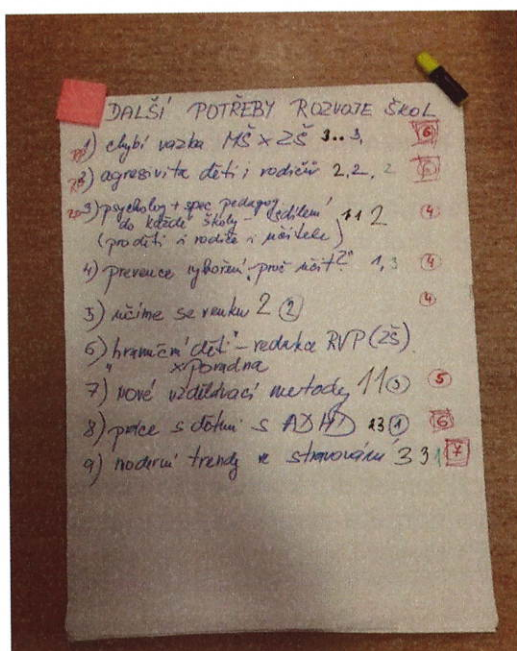 DALŠÍ POTŘEBY ROZVOJE ŠKOL
1) chybí vazba MŠ x ZŠ 3..3, 6
2) agresivita dětí i rodičů 2,2,2 6
3) psycholog + spec. pedagog
do každé školy - sdílení 1 1 2 4
(pro děti i rodiče i učitele)
4) prevence vyhoření, proč učit? 1,3 4
5) učíme se venku 2 2 4
6) "hraniční děti" - redukce RVP (ZŠ)
x Poradna
7) nové vzdělávací metody 1 1 3 5
8) práce s dětmi s ADHD 2 3 1 6
9) moderní trendy ve stravování 3 3 1 7